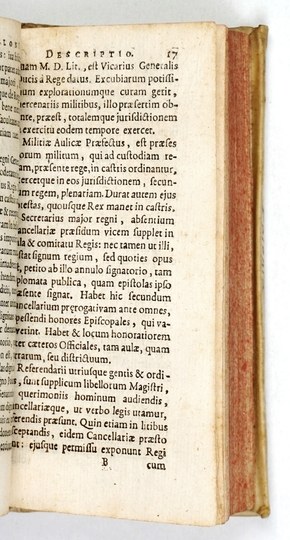 DESCRIPTIO. 17
nam M. D. Lit., est Vicarius Generalis
Ducis à Rege datus. Excubiarum potissi-
um explorationumque curam gerit,
mercenariis militibus, illo præsertim ob-
nte, præest, totalemque jurisdictionem
exercitu eodem tempore exercet.
Militiæ Aulicæ Præfectus, est præses
orum militum, qui ad custodiam re-
am, præsente rege, in castris ordinantur,
ercetque in eos jurisdictionem, secun-
m regem, plenariam. Durat autem ejus
otestas, quousque Rex manet in castris.
Secretarius major regni, absentium
ancellariæ præsidum vicem supplet in
la & comitatu Regis: nec tamen ut illi,
stat signum regium, sed quoties opus
, petito ab illo annulo signatorio, tam
plomata publica, quam epistolas ipso
æsente signat. Habet hic secundum
ancellarium prerogativam ante omnes,
pessendi honores Episcopales, qui va-
verint. Habet & locum honoratiorem
ter cæteros Officiales, tam aulæ, quam
rrarum, seu districtuum.
Referendarii utriusque gentis & ordi-
, sunt supplicum libellorum Magistri,
querimoniis hominum audiendis,
ncellariæque, ut verbo legis utamur,
ferendis præsunt. Quin etiam in litibus
sceptandis, eidem Cancellariæ præsto
nt: ejusque permissu exponunt Regi
B cum